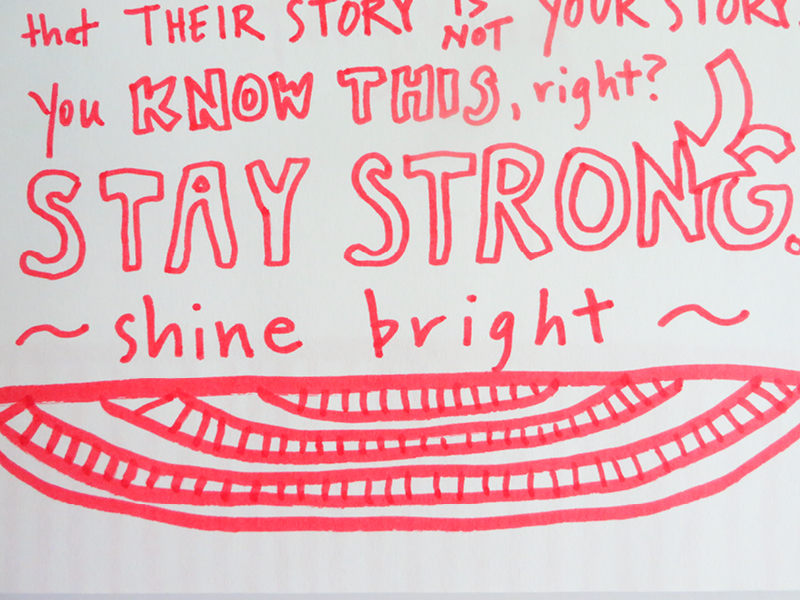 that THEIR STORY IS NOT YOUR STORY.
You KNOW THIS, right?
STAY STRONG.
~ shine bright ~